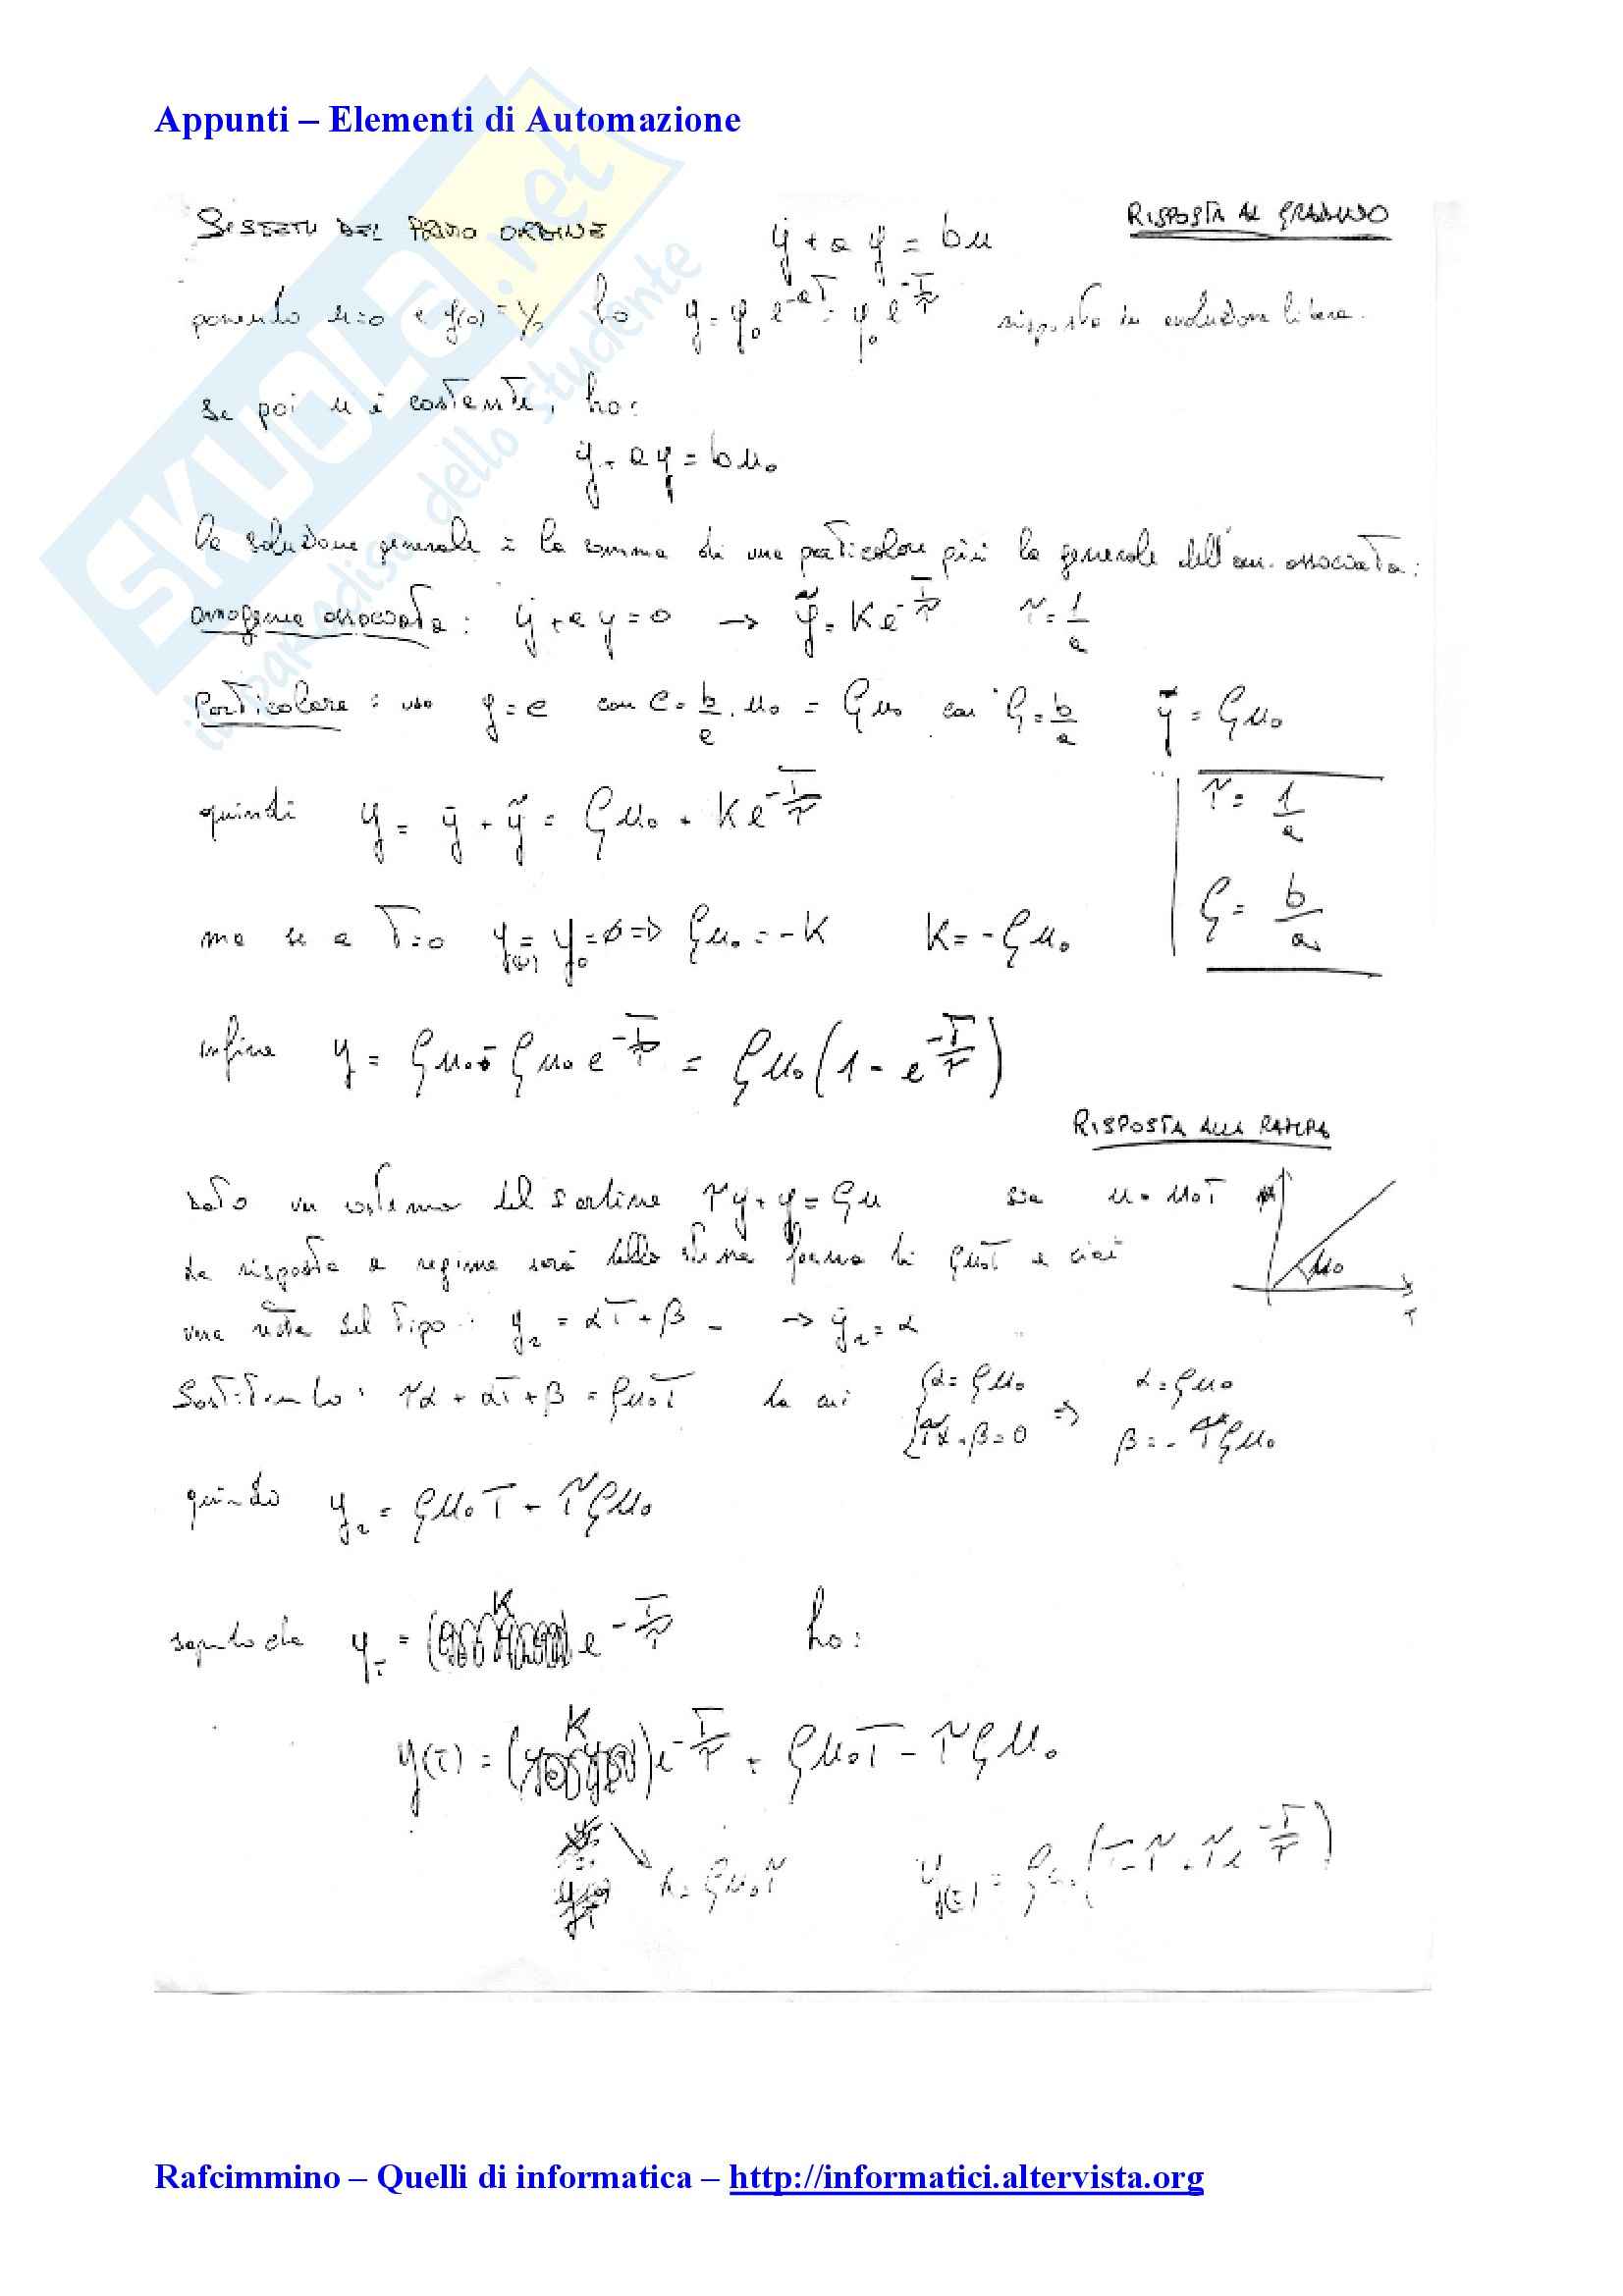 Appunti – Elementi di Automazione
SKUOLA.net
il paradiso dello studente
SISTEMI DEL PRIMO ORDINE ẏ + a y = bu RISPOSTA AL GRADINO
ponendo u=0 e y(0) = y₀ ho y = y₀ e^(-aT) = y₀ e^(-T/τ) risposta in evoluzione libera.
se poi u è costante, ho:
ẏ + a y = b u₀
la soluzione generale è la somma di una particolare più la generale dell'om. associata:
omogenea associata: ẏ + a y = 0 → ỹ = K e^(-T/τ) τ = 1/a
Particolare: uso y = c con c = b/a · u₀ = ζu₀ con ζ = b/a ȳ = ζu₀
quindi y = ȳ + ỹ = ζu₀ + K e^(-T/τ)
τ = 1/a
ζ = b/a
ma se a T=0 y(0) = y₀ = 0 => ζu₀ = -K K = -ζu₀
infine y = ζu₀ - ζu₀ e^(-T/τ) = ζu₀ (1 - e^(-T/τ))
RISPOSTA ALLA RAMPA
dato un sistema del I ordine τẏ + y = ζu sia u = u₀T
la risposta a regime sarà della stessa forma di ζu₀T e cioè
u₀
T
una retta del tipo: y₂ = αT + β → ẏ₂ = α
Sostituendo: τα + αT + β = ζu₀T da cui { α = ζu₀ τα + β = 0 => α = ζu₀ β = - τζu₀
quindi y₂ = ζu₀T - τζu₀
sapendo che y_T = K e^(-T/τ) ho:
y(T) = K e^(-T/τ) + ζu₀T - τζu₀
K = ζu₀τ y(T) = ζu₀ (T - τ + τe^(-T/τ))
Rafcimmino – Quelli di informatica – http://informatici.altervista.org